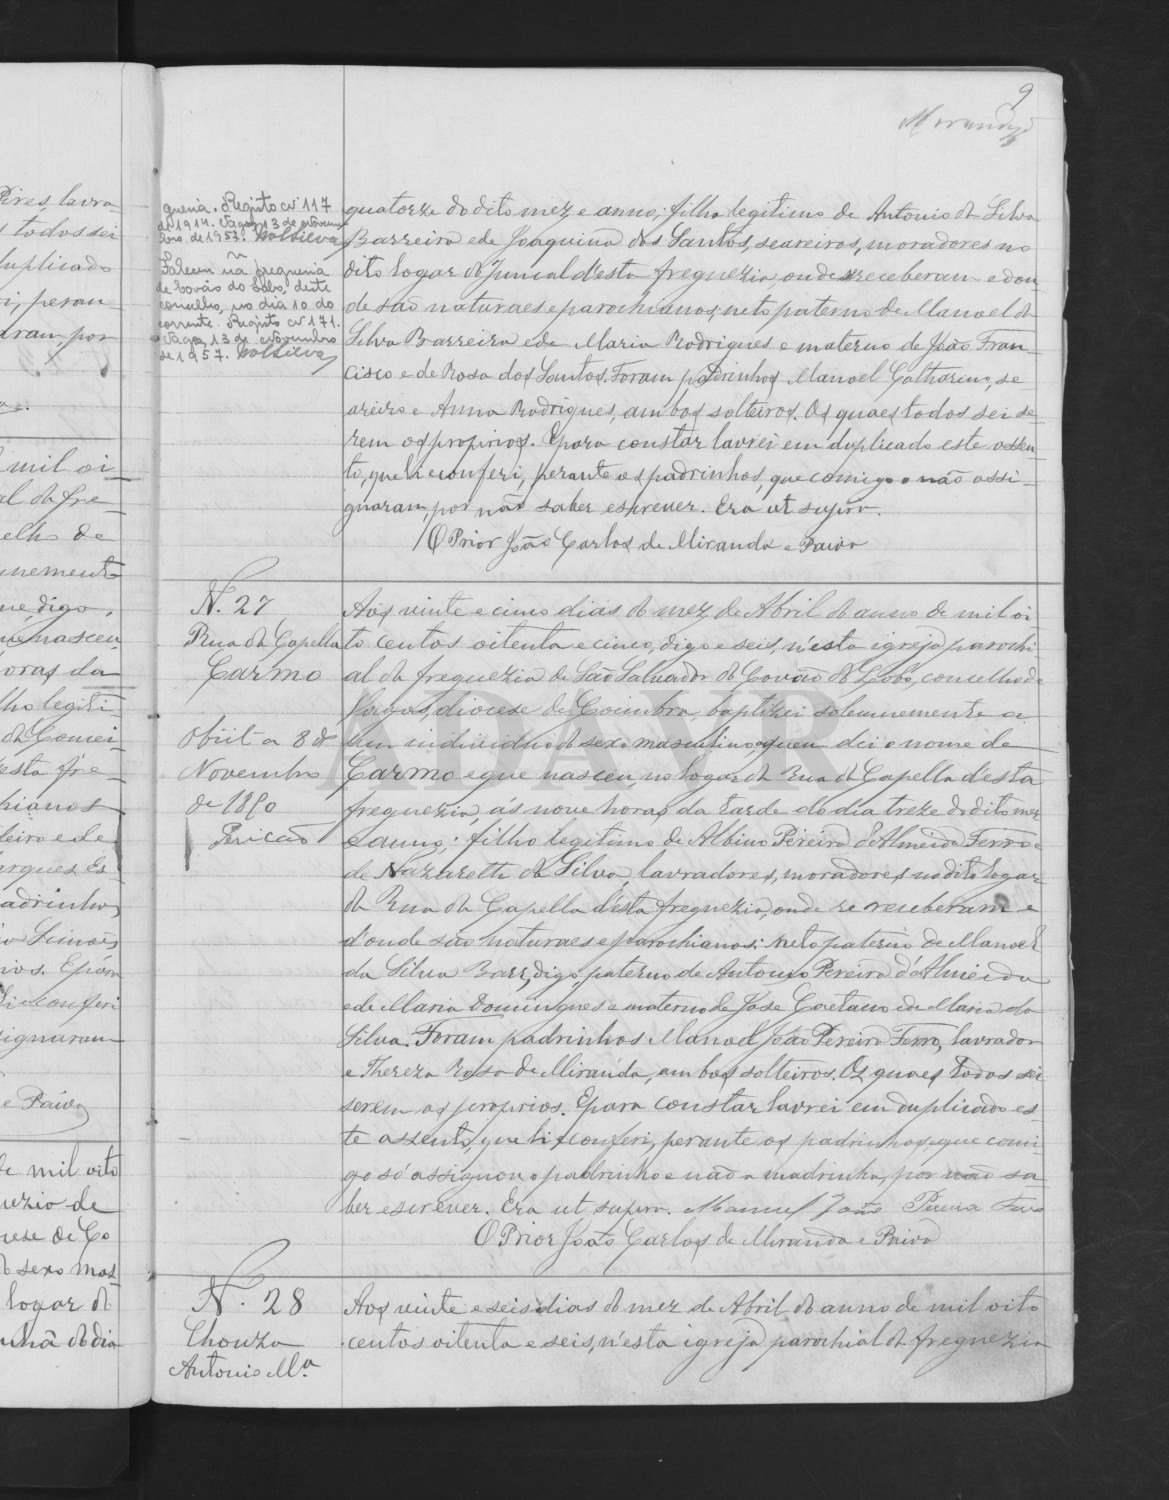 9
Miranda
guesia. Registo nº 117
de 1914. Vagos, 13 de Novem-
bro de 1957.
Faleceu na freguesia
de Covão do Lobo, deste
concelho, no dia 10 do
corrente. Registo nº 171.
Vagos, 13 de Novembro
de 1957.
quatorze do dito mez e anno; filho legitimo de Antonio da Silva
Barreiro e de Joaquina dos Santos, seareiros, moradores no
dito logar do Juncal d'esta freguezia, onde se receberam e don-
de são naturaes e parochianos, neto paterno de Manoel da
Silva Barreira e de Maria Rodrigues e materno de João Fran-
cisco e de Rosa dos Santos. Foram padrinhos Manoel Catharino, se-
areiro e Anna Rodrigues, ambos solteiros. Os quaes todos sei se-
rem os proprios. E para constar lavrei em duplicado este assen-
to, que li e conferi, perante os padrinhos, que comigo não assi-
gnaram, por não saber escrever. Era ut supra.
O Prior João Carlos de Miranda e Paiva
N. 27
Rua da Capella
Carmo
Obiit a 8 de
Novembro
de 1890
Aos vinte e cinco dias do mez de Abril do anno de mil oi-
to centos oitenta e cinco, digo e seis, n'esta igreja parochi-
al da freguezia de São Salvador do Covão do Lobo, concelho de
Vagos, diocese de Coimbra, baptizei solemnemente a
um individuo do sexo masculino a quem dei o nome de
Carmo e que nasceu, no logar da Rua da Capella d'esta
freguezia, ás nove horas da tarde do dia treze do dito mez
e anno; filho legitimo de Albino Pereira d'Almeida Ferro e
de Nazareth da Silva, lavradores, moradores no dito logar
da Rua da Capella d'esta freguezia, onde se receberam e
d'onde são naturaes e parochianos; neto paterno de Manoel
da Silva Barr, digo, paterno de Antonio Pereira d'Almeida
e de Maria Domingues e materno de José Caetano e de Maria da
Silva. Foram padrinhos Manoel João Pereira Ferro, lavrador
e Thereza Rosa de Miranda, ambos solteiros. Os quaes todos sei
serem os proprios. E para constar lavrei em duplicado es-
te assento, que li e conferi, perante os padrinhos, que comi-
go só assignou o padrinho e não a madrinha, por não sa-
ber escrever. Era ut supra. Manuel João Pereira Ferro
O Prior João Carlos de Miranda e Paiva
N. 28
Chouza
Antonio Mª
Aos vinte e seis dias do mez de Abril do anno de mil oito
centos oitenta e seis, n'esta igreja parochial da freguezia
ADAVR